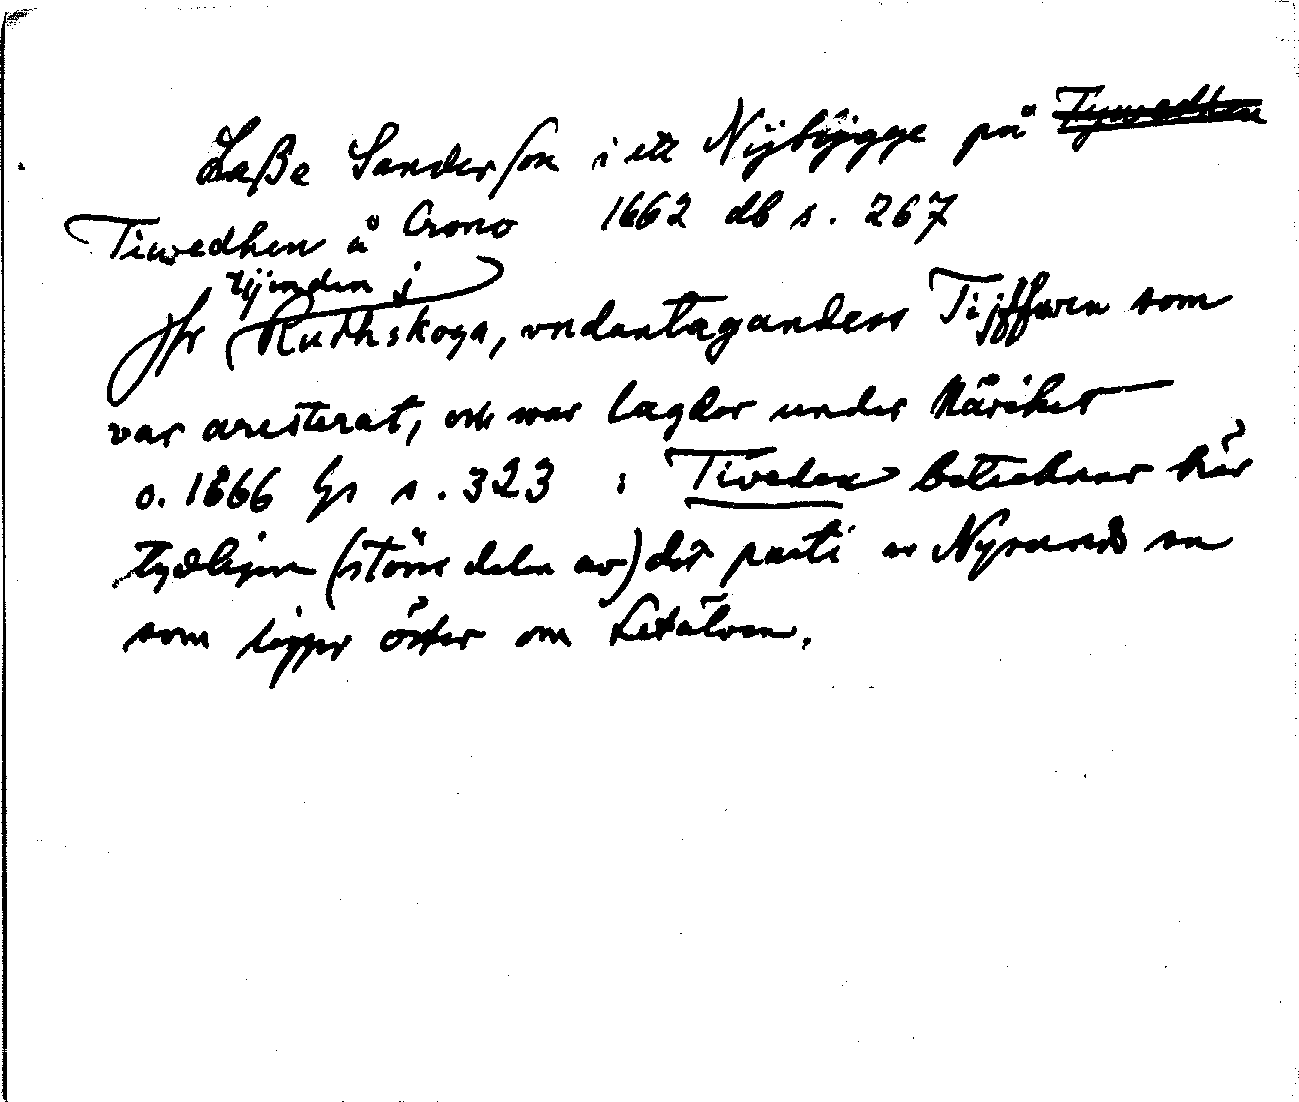 Laße Sanderson i ett Nijbijgge på Tywedhen
Tiwedhen å Crono 1662 db s. 267
tijenden j
Jfr Ruthskoga, vndantagandess Tijffwen som
var aresterat, och war lagder under Näriket
o. 1666 hs s. 323 : Tiveden betecknar här
tydligen (större delen av) det parti av Nysunds sn
som ligger öster om Letälven.